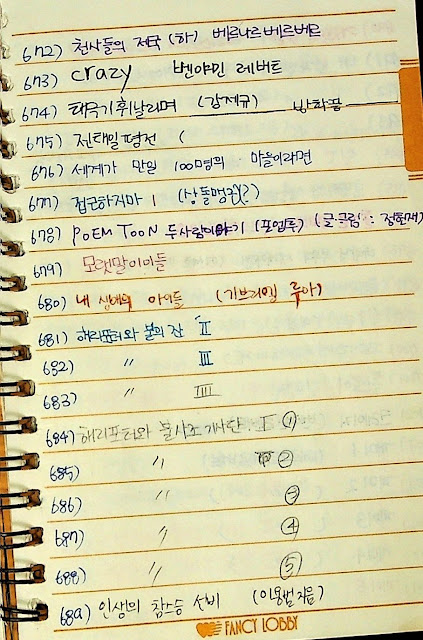 672) 천사들의 제국 (하) 베르나르베르베르
673) crazy 벤야민 레버트
674) 태극기휘날리며 (강제규) 방학끝
675) 전태일평전 (
676) 세계가 만일 100명의 마을이라면
677) 접근하지마 1 (?)
678) POEM TOON 두사람이야기 (포엠툰) (글·그림 : 정헌재)
679) 모랫말아이들
680) 내 생애의 아이들 (가브리엘 루아)
681) 해리포터와 불의 잔 II
682) 〃 III
683) 〃 IIII
684) 해리포터와 불사조 기사단 I ①
685) 〃 ②
686) 〃 ③
687) 〃 ④
688) 〃 ⑤
689) 인생의 참스승 선비 (이용범지음)
FANCY LOBBY